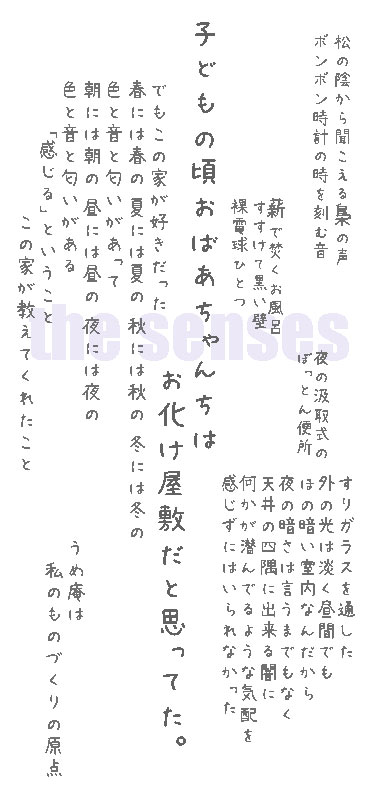 松の陰から聞こえる梟の声
ボンボン時計の時を刻む音
薪で焚くお風呂
すすけて黒い壁
裸電球ひとつ
夜の汲取式の
ぼっとん便所
すりガラスを通した
外の光は淡く昼間でも
ほの暗い室内なんだから
夜の暗さは言うまでもなく
天井の四隅に出来る闇に
何かが潜んでるような気配を
感じずにはいられなかった
子どもの頃おばあちゃんちは
お化け屋敷だと思ってた。
でもこの家が好きだった
春には春の 夏には夏の 秋には秋の 冬には冬の
色と音と匂いがあって
朝には朝の 昼には昼の 夜には夜の
色と音と匂いがある
「感じる」ということ
この家が教えてくれたこと
うめ庵は
私のものづくりの原点
the senses